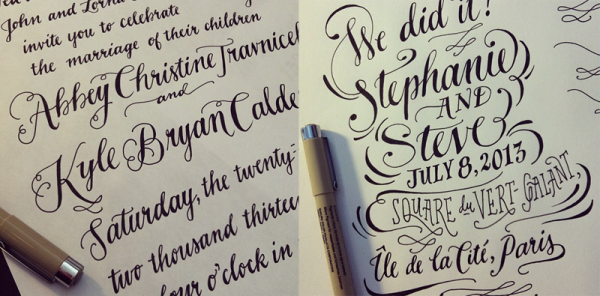 John and Lorna
invite you to celebrate
the marriage of their children
Abbey Christine Travnicek
and
Kyle Bryan Calde
Saturday, the twenty-
two thousand thirtee
four o'clock in
We did it!
Stephanie
AND
Steve
JULY 8, 2013
SQUARE du VERT-GALANT,
Île de la Cité, Paris